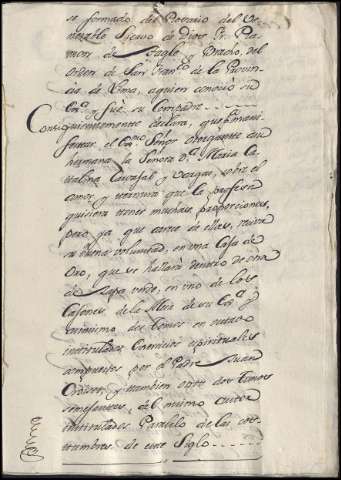 se formado del Patricio del Ve-
nerable Siervo de Dios Fr. Ra-
mon de Tagle, y Bracho, del
orden de San Fran.co de la Provin-
cia de Lima, a quien conoció su
Ex.a y fué su Compadre
Consiguientemente declara, que para mani-
festar, el Ex.mo Señor otorgante a su
hermana la Señora D.a Maria Ca-
talina Carabajal y Vargas, sobre el
amor y ternura que la profesa
quisiera tener muchas proporciones,
pero ya que carece de ellas, reciva
su buena voluntad, en una Caxa de
Oro, que se hallará dentro de otra
de Zapa verde, en uno de los
Caxones de la Mesa de su Ex.a y
asimismo dos tomos en octavo
intitulados Exercicios espirituales
compuestos por el Padre Juan
y tambien otros dos Tomos
semejantes, del mismo autor
intitulados Paralelo de las cos-
tumbres de este Siglo